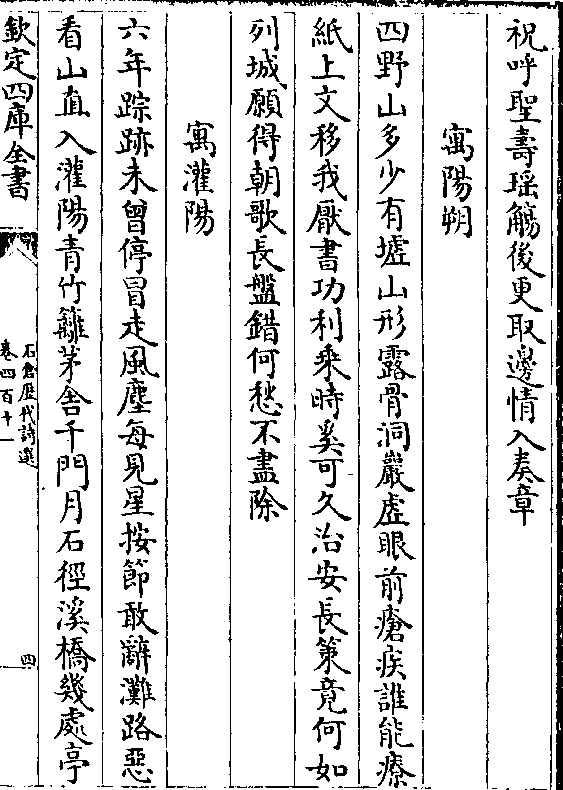 祝呼聖壽瑶觴後更取邊情入奏章
寓陽朔
四野山多少有墟山形露骨洞巖虚眼前瘡疾誰能療
紙上文移我厭書功利乘時奚可久治安長策竟何如
列城願得朝歌長盤錯何愁不盡除
寓灌陽
六年踪跡未曾停冒走風塵每見星按節敢辭灘路惡
看山直入灌陽青竹籬茅舍千門月石徑溪橋幾處亭
欽定四庫全書
石倉歴代詩選
卷四百十一
四